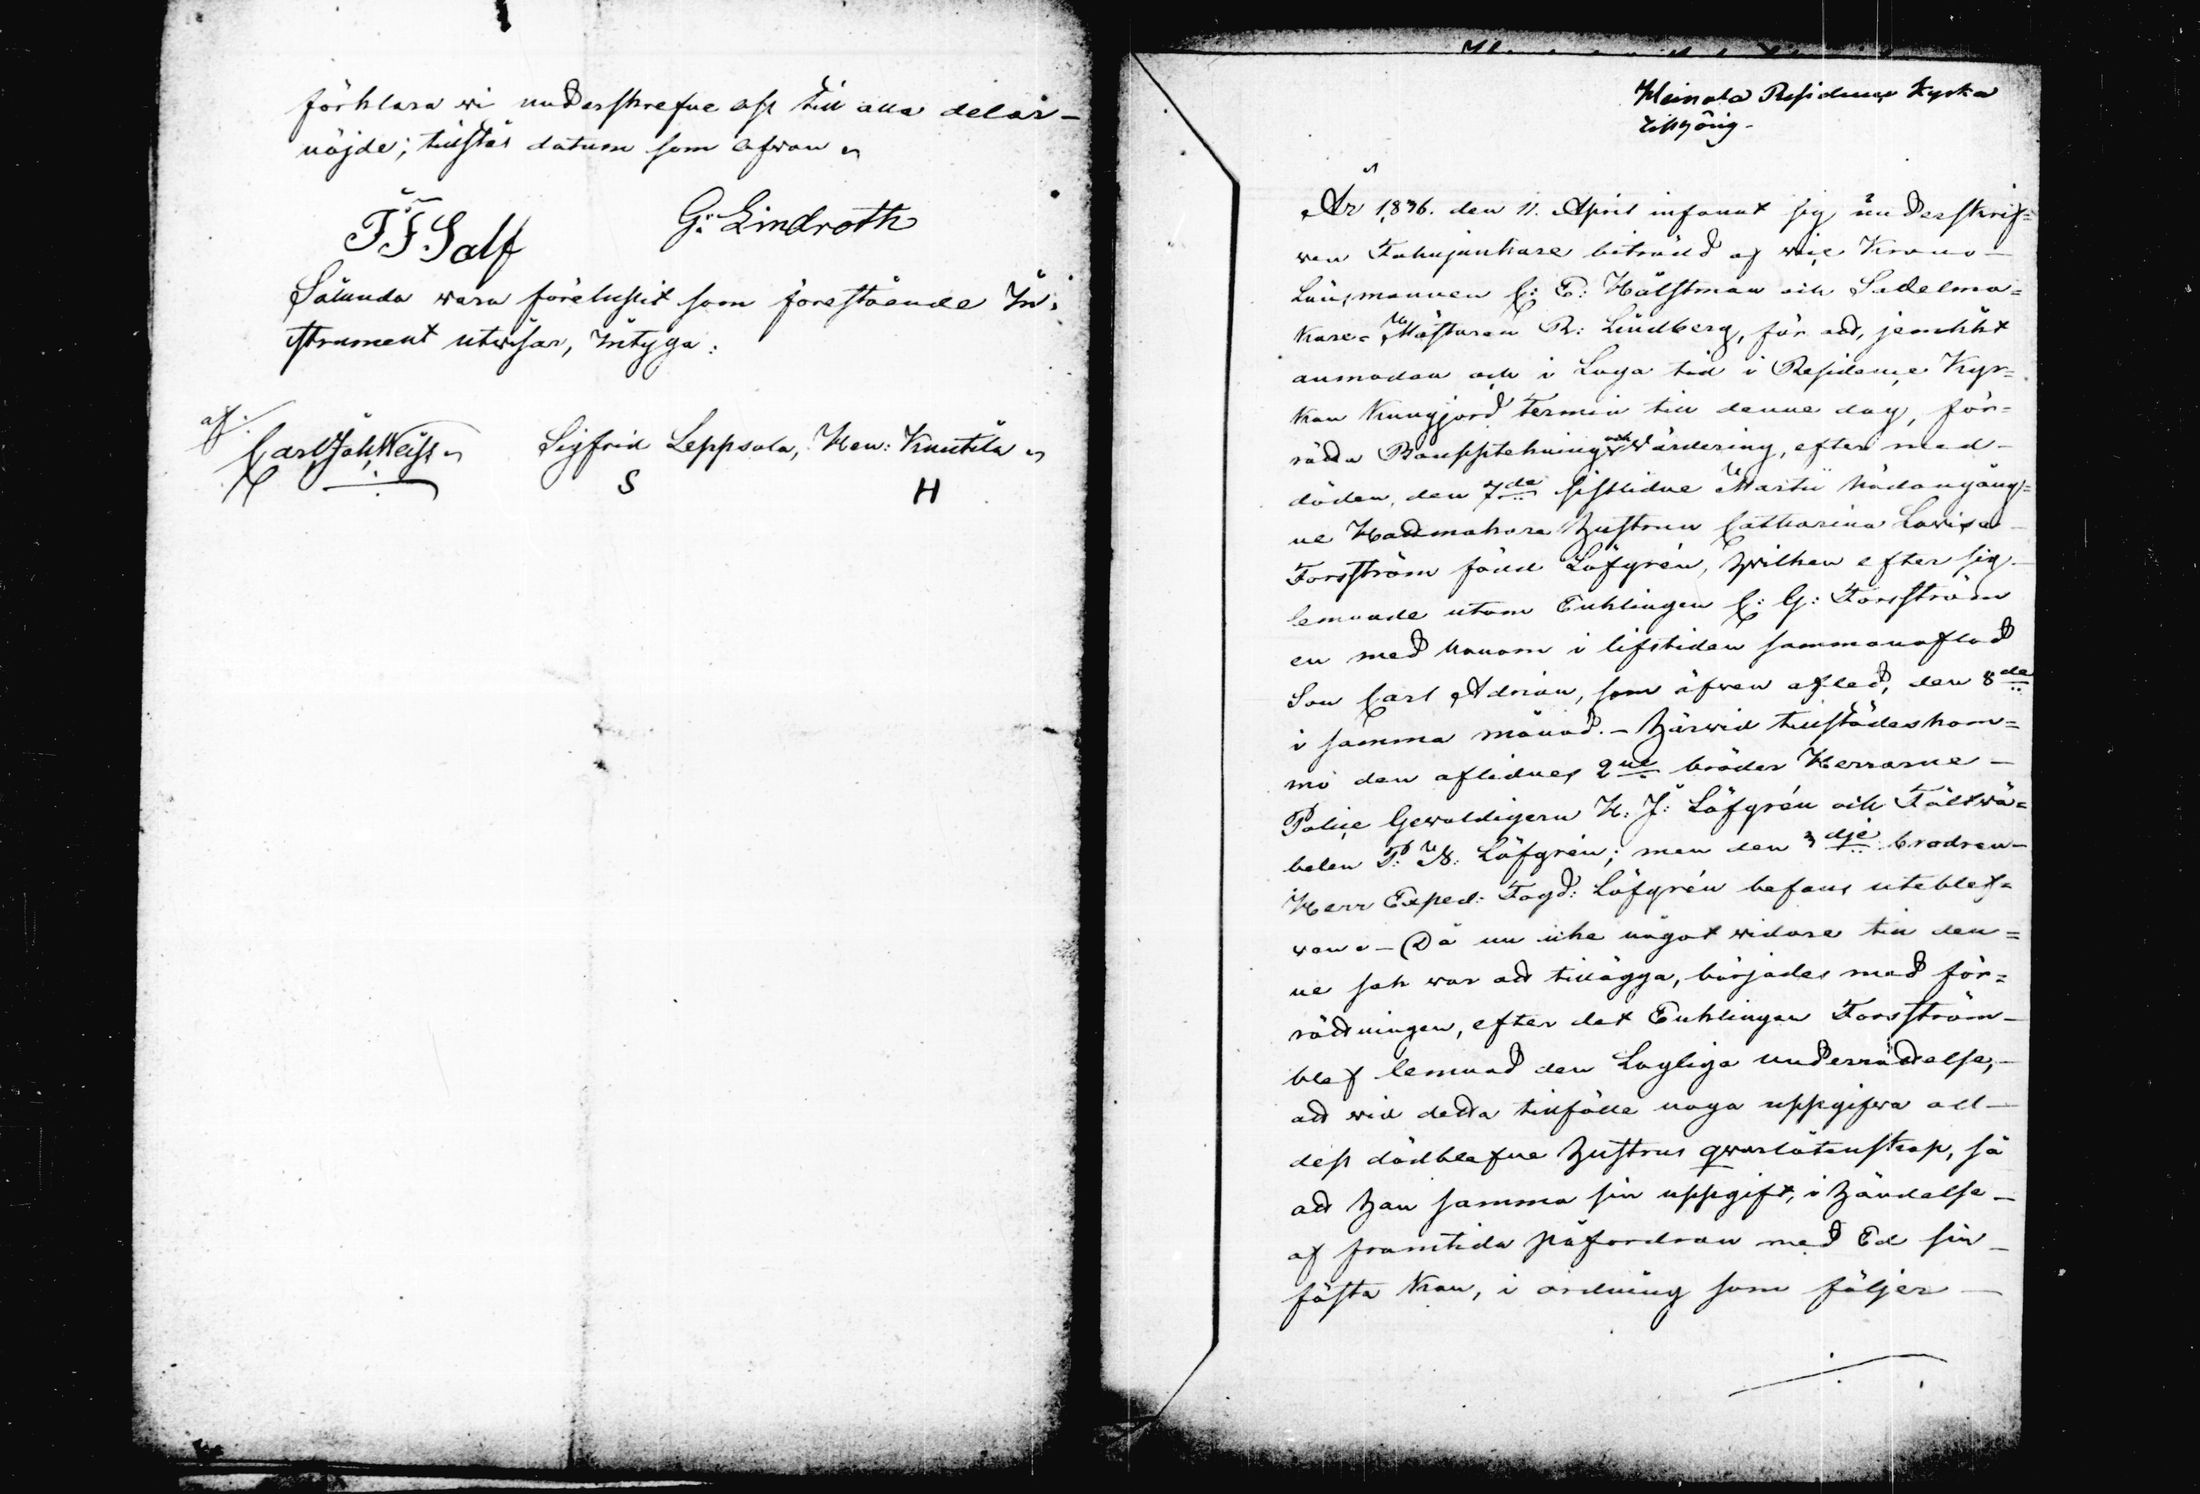 förklara wi underskrefne oss till alla delar
nöjde; tillstår datum som ofwan
T F Salf
G: Lindroth
Sålunda wara förelupit som förestående In-
strument utwisar, Intyga:
af
Carl Joh Weiss
Sigfrid Leppsala, Hen: Knutila
S
H
Heinola Residence Kyrka
tillhörig
År 1836. den 11. April infant sig underskrif=
wen Fahnjunkare biträdd af wice Krono
Länsmannen C: E: Hälstman och Sadelma=
kare=Mästaren R: Lindberg, för att, jemlikt
anmodan och i Laga tid i Residence Kyr=
kan kungjord termin till denne dag, för=
rätta Boupptekning och Wärdering, efter med
döden, den 7de sistlidne Martii hädangång=
ne Hattmakare Hustrun Catharina Lovisa
Forsström född Löfgrén, hwilken efter sig
lemnade utom Enklingen C: G: Forsström
en med honom i lifstiden sammanaflad
Son Carl Adrian, som äfwen afled, den 8de
i samma månad. - Härwid tillstädeskom=
mo den aflidnes 2ne bröder Herrarne
Police Gewaldigern H: J: Löfgrén och Fältwä=
belen P: N: Löfgrén; men den 3dje brodren
Herr Exped: Fogd: Löfgrén befans uteblef=
wen. - Då nu icke något widare till den=
ne sak war att tillägga, börjades med för=
rättningen, efter det Enklingen Forsström
blef lemnad den Lagliga underrättelse,
att wid detta tillfälle noga uppgifwa all
dess dödblefne Hustrus qwarlåtenskap, så
att han samma sin uppgift, i händelse
af framtida påfordran med Ed sin
fästa kan, i ordning som följer